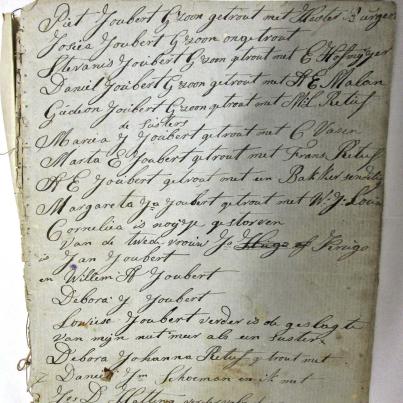 Piet Joubert Gzoon getrout met Hester Burger
Josua Joubert Gzoon ongetrout
Stevanis Joubert Gzoon getrout met E Hofmyer
Daniel Joubert Gzoon getrout met A E Malan
Gideon Joubert Gzoon getrout met M L Retief
de Susters
Maria J Joubert getrout met C
Marta E Joubert getrout met Frans Retief
A E Joubert getrout met en Bakker
Margareta Joubert getrout met W. J. Louw
Cornelia is gestorven
Van de twede vrouw Hugo of Krugo
is Jan Joubert
en Willem A Joubert
Debora J Joubert
Louwisa Joubert verder is de geslagte
van mijn niet meer als en suster
Debora Johanna Retief getrout met
Daniel Schoeman en ik met